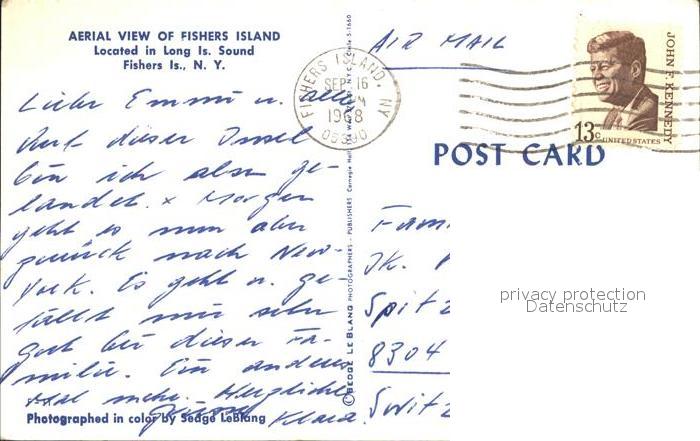 AERIAL VIEW OF FISHERS ISLAND
Located in Long Is. Sound
Fishers Is., N. Y.
AIR MAIL
FISHERS ISLAND, NY
SEP 16
1968
06390
JOHN F. KENNEDY
13c
UNITED STATES
POST CARD
Liebe Emmi u.
Auf dieser Insel
bin ich also ge-
landet. x Morgen
geht es nun aber
zurück nach New-
York. Es geht u. ge-
fällt mir sehr
gut bei dieser Fa-
milie. Ein anderes
Mal mehr. Herzliche
Grüsse Klara.
Photographed in color by Sedge LeBlang
© SEDGE LE BLANG PHOTOGRAPHERS - PUBLISHERS
Fam.
Jk.
Spitz
8304
Switz
privacy protection
Datenschutz